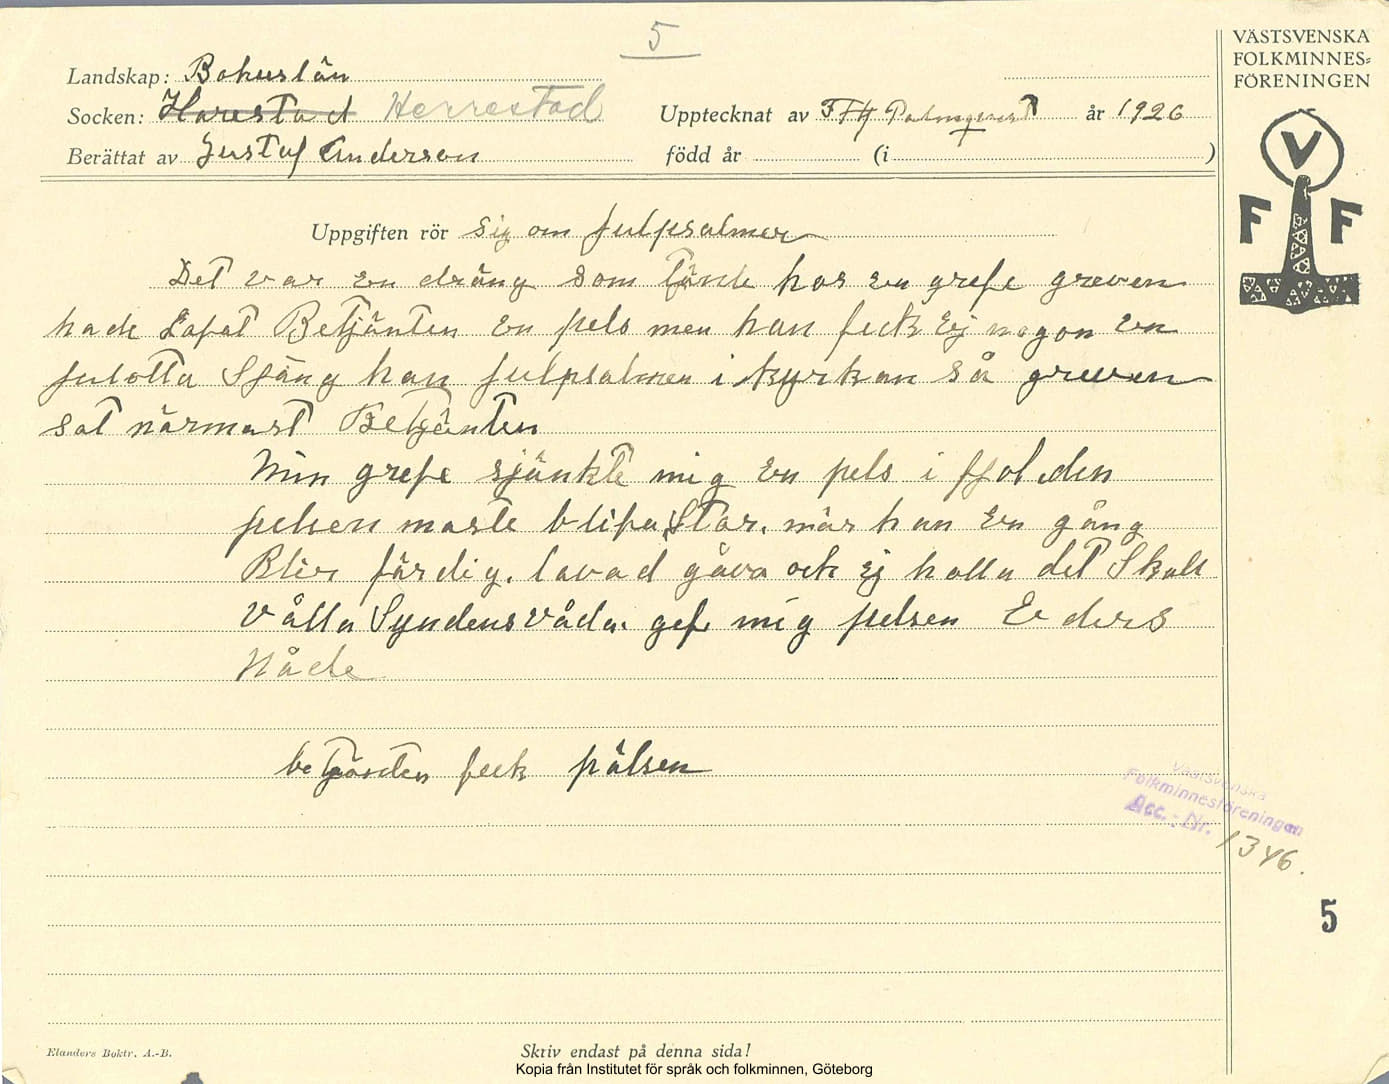 5
VÄSTSVENSKA
FOLKMINNES=
FÖRENINGEN
Landskap: Bohuslän
Socken: Harestad Herrestad Upptecknat av år 1926
Berättat av Gustaf Anderson född år (i )
V
F F
Uppgiften rör sig om julpsalmer
Det var en dräng som tjänte hos en grefe greven
hade Lofat Betjänten en pels men han feck Ej nogon en
julotta Sjäng han julpsalmen i kyrkan så greven
sat närmast Betjänten
Min grefe sjänkte mig en pels i fjol den
pelsen maste blifva Star. när han en gång
Blir färdig. lavad gåva och ej holla det Skall
vålla Syndens våda. gef mig pelsen Eders
Nåde
betjänten feck pälsen
Västsvenska
Folkminnesföreningen
Acc.-Nr. 1346.
5
Elanders Boktr. A.-B.
Skriv endast på denna sida!
Kopia från Institutet för språk och folkminnen, Göteborg